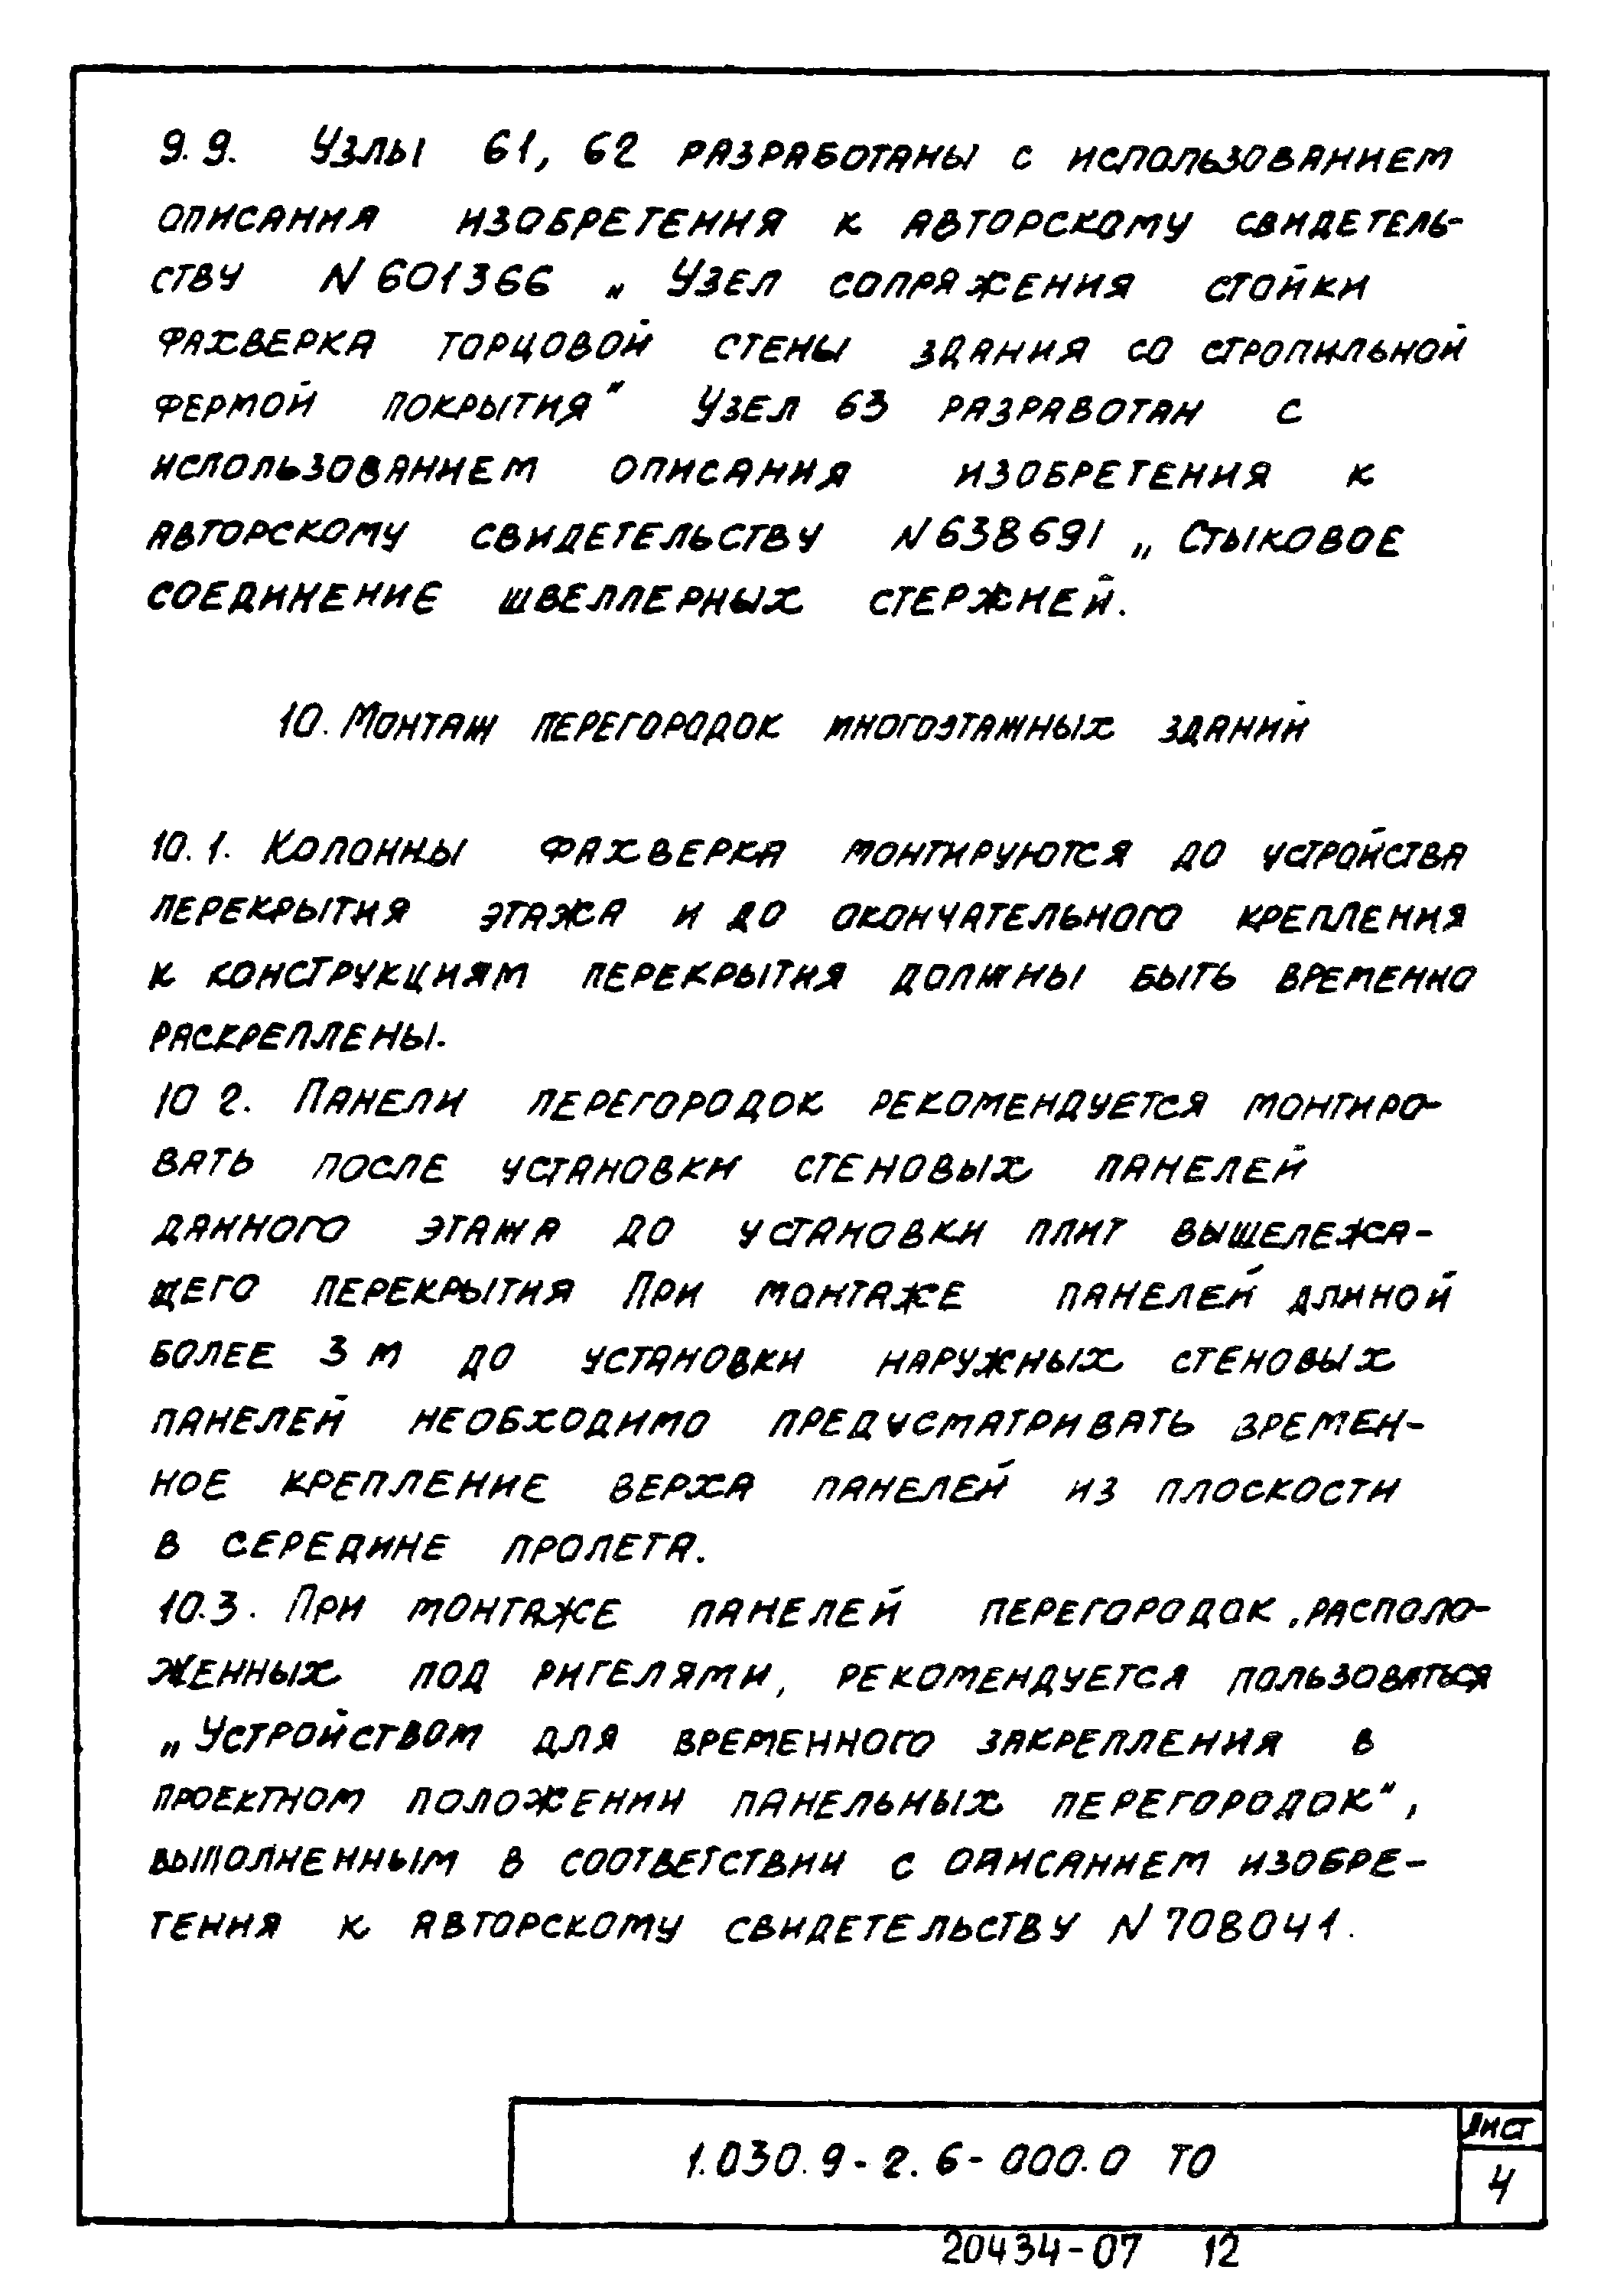 9.9. Узлы 61, 62 разработаны с использованием
описания изобретения к авторскому свидетель-
ству N 601366 „Узел сопряжения стойки
фахверка торцовой стены здания со стропильной
фермой покрытия“ Узел 63 разработан с
использованием описания изобретения к
авторскому свидетельству N 638691 „Стыковое
соединение швеллерных стержней.
10. Монтаж перегородок многоэтажных зданий
10.1. Колонны фахверка монтируются до устройства
перекрытия этажа и до окончательного крепления
к конструкциям перекрытия должны быть временно
раскреплены.
10 2. Панели перегородок рекомендуется монтиро-
вать после установки стеновых панелей
данного этажа до установки плит вышележа-
щего перекрытия При монтаже панелей длиной
более 3 м до установки наружных стеновых
панелей необходимо предусматривать времен-
ное крепление верха панелей из плоскости
в середине пролета.
10.3. При монтаже панелей перегородок, располо-
женных под ригелями, рекомендуется пользоваться
„Устройством для временного закрепления в
проектном положении панельных перегородок“,
выполненным в соответствии с описанием изобре-
тения к авторскому свидетельству N 708041.
1.030.9-2.6-000.0 ТО
Лист
4
20434-07 12